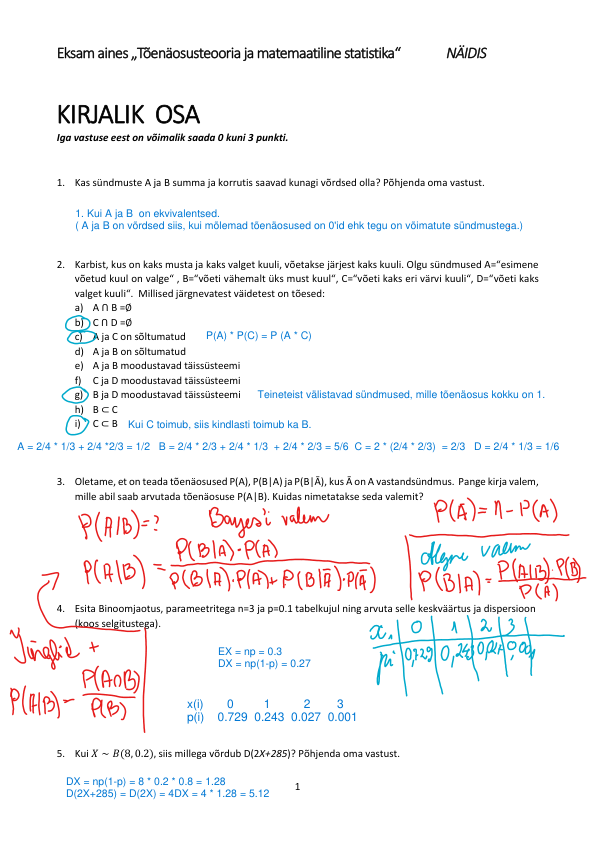 Eksam aines „Tõenäosusteooria ja matemaatiline statistika“ NÄIDIS
KIRJALIK OSA
Iga vastuse eest on võimalik saada 0 kuni 3 punkti.
1. Kas sündmuste A ja B summa ja korrutis saavad kunagi võrdsed olla? Põhjenda oma vastust.
1. Kui A ja B on ekvivalentsed.
( A ja B on võrdsed siis, kui mõlemad tõenäosused on 0'id ehk tegu on võimatute sündmustega.)
2. Karbist, kus on kaks musta ja kaks valget kuuli, võetakse järjest kaks kuuli. Olgu sündmused A=“esimene
võetud kuul on valge“ , B=“võeti vähemalt üks must kuul“, C=“võeti kaks eri värvi kuuli“, D=“võeti kaks
valget kuuli“. Millised järgnevatest väidetest on tõesed:
a) A ∩ B =Ø
b) C ∩ D =Ø
c) A ja C on sõltumatud P(A) * P(C) = P (A * C)
d) A ja B on sõltumatud
e) A ja B moodustavad täissüsteemi
f) C ja D moodustavad täissüsteemi
g) B ja D moodustavad täissüsteemi Teineteist välistavad sündmused, mille tõenäosus kokku on 1.
h) B ⊂ C
i) C ⊂ B Kui C toimub, siis kindlasti toimub ka B.
A = 2/4 * 1/3 + 2/4 *2/3 = 1/2 B = 2/4 * 2/3 + 2/4 * 1/3 + 2/4 * 2/3 = 5/6 C = 2 * (2/4 * 2/3) = 2/3 D = 2/4 * 1/3 = 1/6
3. Oletame, et on teada tõenäosused P(A), P(B|A) ja P(B|Ā), kus Ā on A vastandsündmus. Pange kirja valem,
mille abil saab arvutada tõenäosuse P(A|B). Kuidas nimetatakse seda valemit?
P(A|B)=? Bayes'i valem P(Ā) = 1 - P(A)
P(A|B) = P(B|A)·P(A) / P(B|A)·P(A)+P(B|Ā)·P(Ā)
valem
P(B|A) = P(A|B)·P(B) / P(A)
4. Esita Binoomjaotus, parameetritega n=3 ja p=0.1 tabelkujul ning arvuta selle keskväärtus ja dispersioon
(koos selgitustega).
xi 0 1 2 3
pi 0,729 0,243 0,027 0,001
+
P(A|B) = P(A∩B) / P(B)
EX = np = 0.3
DX = np(1-p) = 0.27
x(i) 0 1 2 3
p(i) 0.729 0.243 0.027 0.001
5. Kui X ~ B(8, 0.2), siis millega võrdub D(2X+285)? Põhjenda oma vastust.
DX = np(1-p) = 8 * 0.2 * 0.8 = 1.28
D(2X+285) = D(2X) = 4DX = 4 * 1.28 = 5.12
1